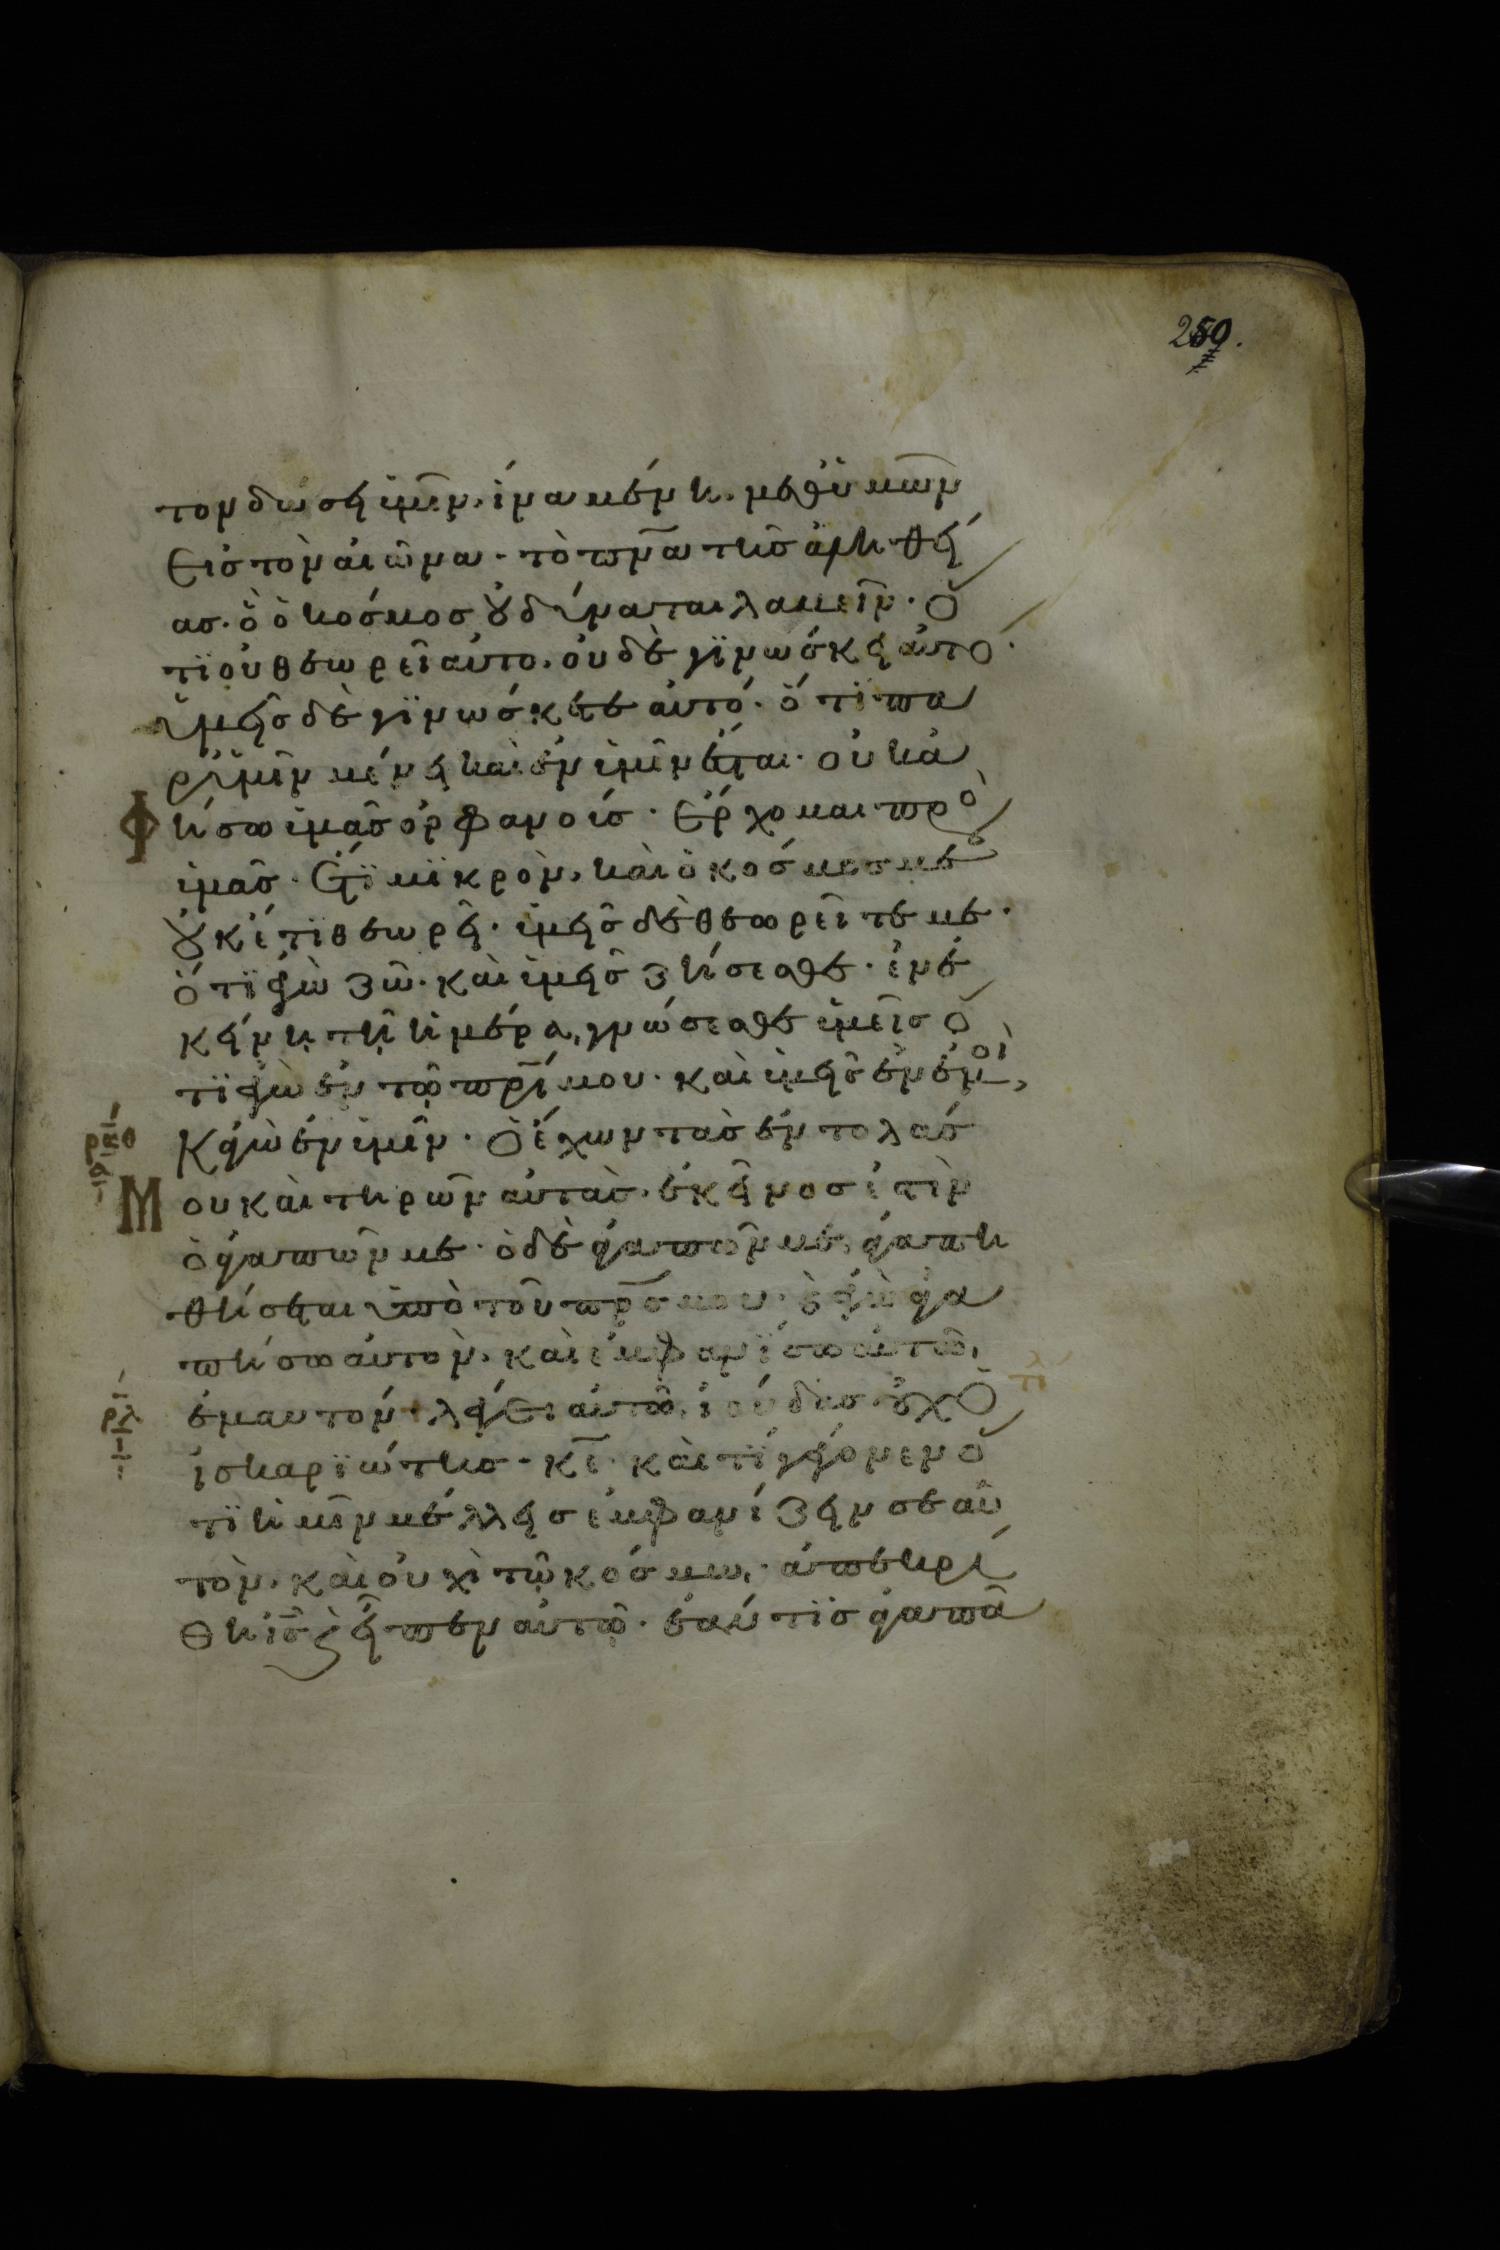 250.
τον δώσει ϋμῖν. ἵνα μένη. μεθ ὑμῶν
Εἰς τὸν αἰῶνα. τὸ πν̅α τῆς ἀληθεί
ας. ὃ ὁ κόσμος οὐ δύναται λαβεῖν. Ὅ
τϊ οὐ θεωρεῖ αὐτο. οὐδὲ γϊνώσκει αὐτό.
ὑμεῖς δὲ γϊνώσκετε αὐτό. ὅτϊ πα
ρ' ὑμῖν μένει καὶ ἐν ὑμῖν ἔσται. οὐκ ἀ
Φήσω ὑμᾶς ὀρφανούς. Ἔρχομαι πρὸς
ὑμᾶς. Ἔτϊ μϊκρὸν. καὶ ὁ κόσμος με
οὐκέτϊ θεωρεῖ. ὑμεῖς δὲ θεωρεῖτε με.
ὅτϊ ἐγὼ ζῶ. καὶ ὑμεῖς ζήσεσθε. ἐν ἐ
κείνῃ τῆ ἡμέρα, γνώσεσθε ὑμεῖς ὅ
τϊ ἐγὼ ἐν τῷ πρ̅ί μου. καὶ ὑμεῖς ἐν ἐμοὶ,
Κἀγὼ ἐν ὑμῖν. Ὁ ἔχων τὰς ἐντολάς
Μου καὶ τηρῶν αὐτὰς. ἐκεῖνος ἐστὶν
ὁ ἀγαπῶν με. ὁ δὲ ἀγαπῶν με, ἀγαπη
θήσεται ὑπὸ τοῦ πρ̅ς μου. καὶ ἐγὼ ἀγα
πήσω αὐτον. καὶ ἐμφανϊσω αὐτῶ,
ἐμαυτόν. λέγει αὐτῶ, ἰούδας οὐχ Ὁ
ἰσκαρϊώτης. κ̅ε. καὶ τϊ γέγονεν ὅ
τϊ ἡμῖν μέλλεις ἐμφανίζειν σεαυ
τὸν. καὶ οὐχὶ τῷ κόσμω. ἀπεκρί
θη ἰ̅ς καὶ εἶπεν αὐτῷ. ἐάν τϊς ἀγαπᾶ
ρκθ
ρλ